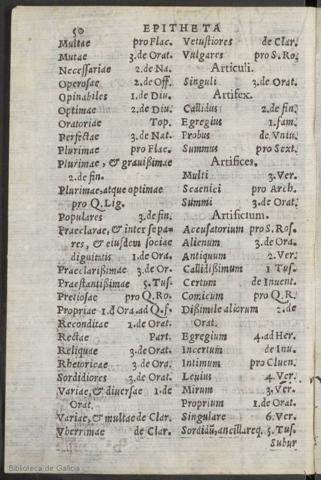 50 EPITHETA
Multae pro Flac.
Mutae 3.de Orat.
Necessariae 2.de Na.
Operosae 2.de Off.
Opinabiles 1.de Diu.
Optimae 2.de Diu.
Oratoriae Top.
Perfectae 3.de Nat.
Plurimae pro Flac.
Plurimae, & grauissimae
2.de fin.
Plurimae, atque optimae
pro Q. Lig.
Populares 3.de fin.
Praeclarae, & inter se pa-
res, & eiusdem sociae
dignitatis 1.de Ora.
Praeclarissimae 3.de Or.
Praestantissimae 5.Tus.
Pretiosae pro Q.Ro.
Propriae 1.d Ora.ad Q.f.
Reconditae 1.de Orat.
Rectae Part.
Reliquae 3.de Orat.
Rhetoricae 3.de Ora.
Sordidiores 3.de Orat.
Variae, & diuersae 1.de
Orat.
Variae, & multae de Clar.
Vberrimae de Clar.
Vetustiores de Clar.
Vulgares pro S.Ro.
Articuli.
Singuli 3.de Orat.
Artifex.
Callidus 2.de fin.
Egregius 1.fam.
Probus de Vniu.
Summus pro Sext.
Artifices.
Multi 3.Ver.
Scaenici pro Arch.
Summi 3.de Orat.
Artificium.
Accusatorium pro S.Ros.
Alienum 3.de Ora.
Antiquum 2.Ver.
Callidissimum 1 Tus.
Certum de Inuent.
Comicum pro Q.R.
Dissimile aliorum 2.de
Orat.
Egregium 4.ad Her.
Incertum de Inu.
Intimum pro Cluen.
Leuius 4.Ver.
Mirum 3.Ver.
Proprium 1.de Orat.
Singulare 6.Ver.
Sordidū, ancillareq. 5.Tus.
Subur
Biblioteca de Galicia